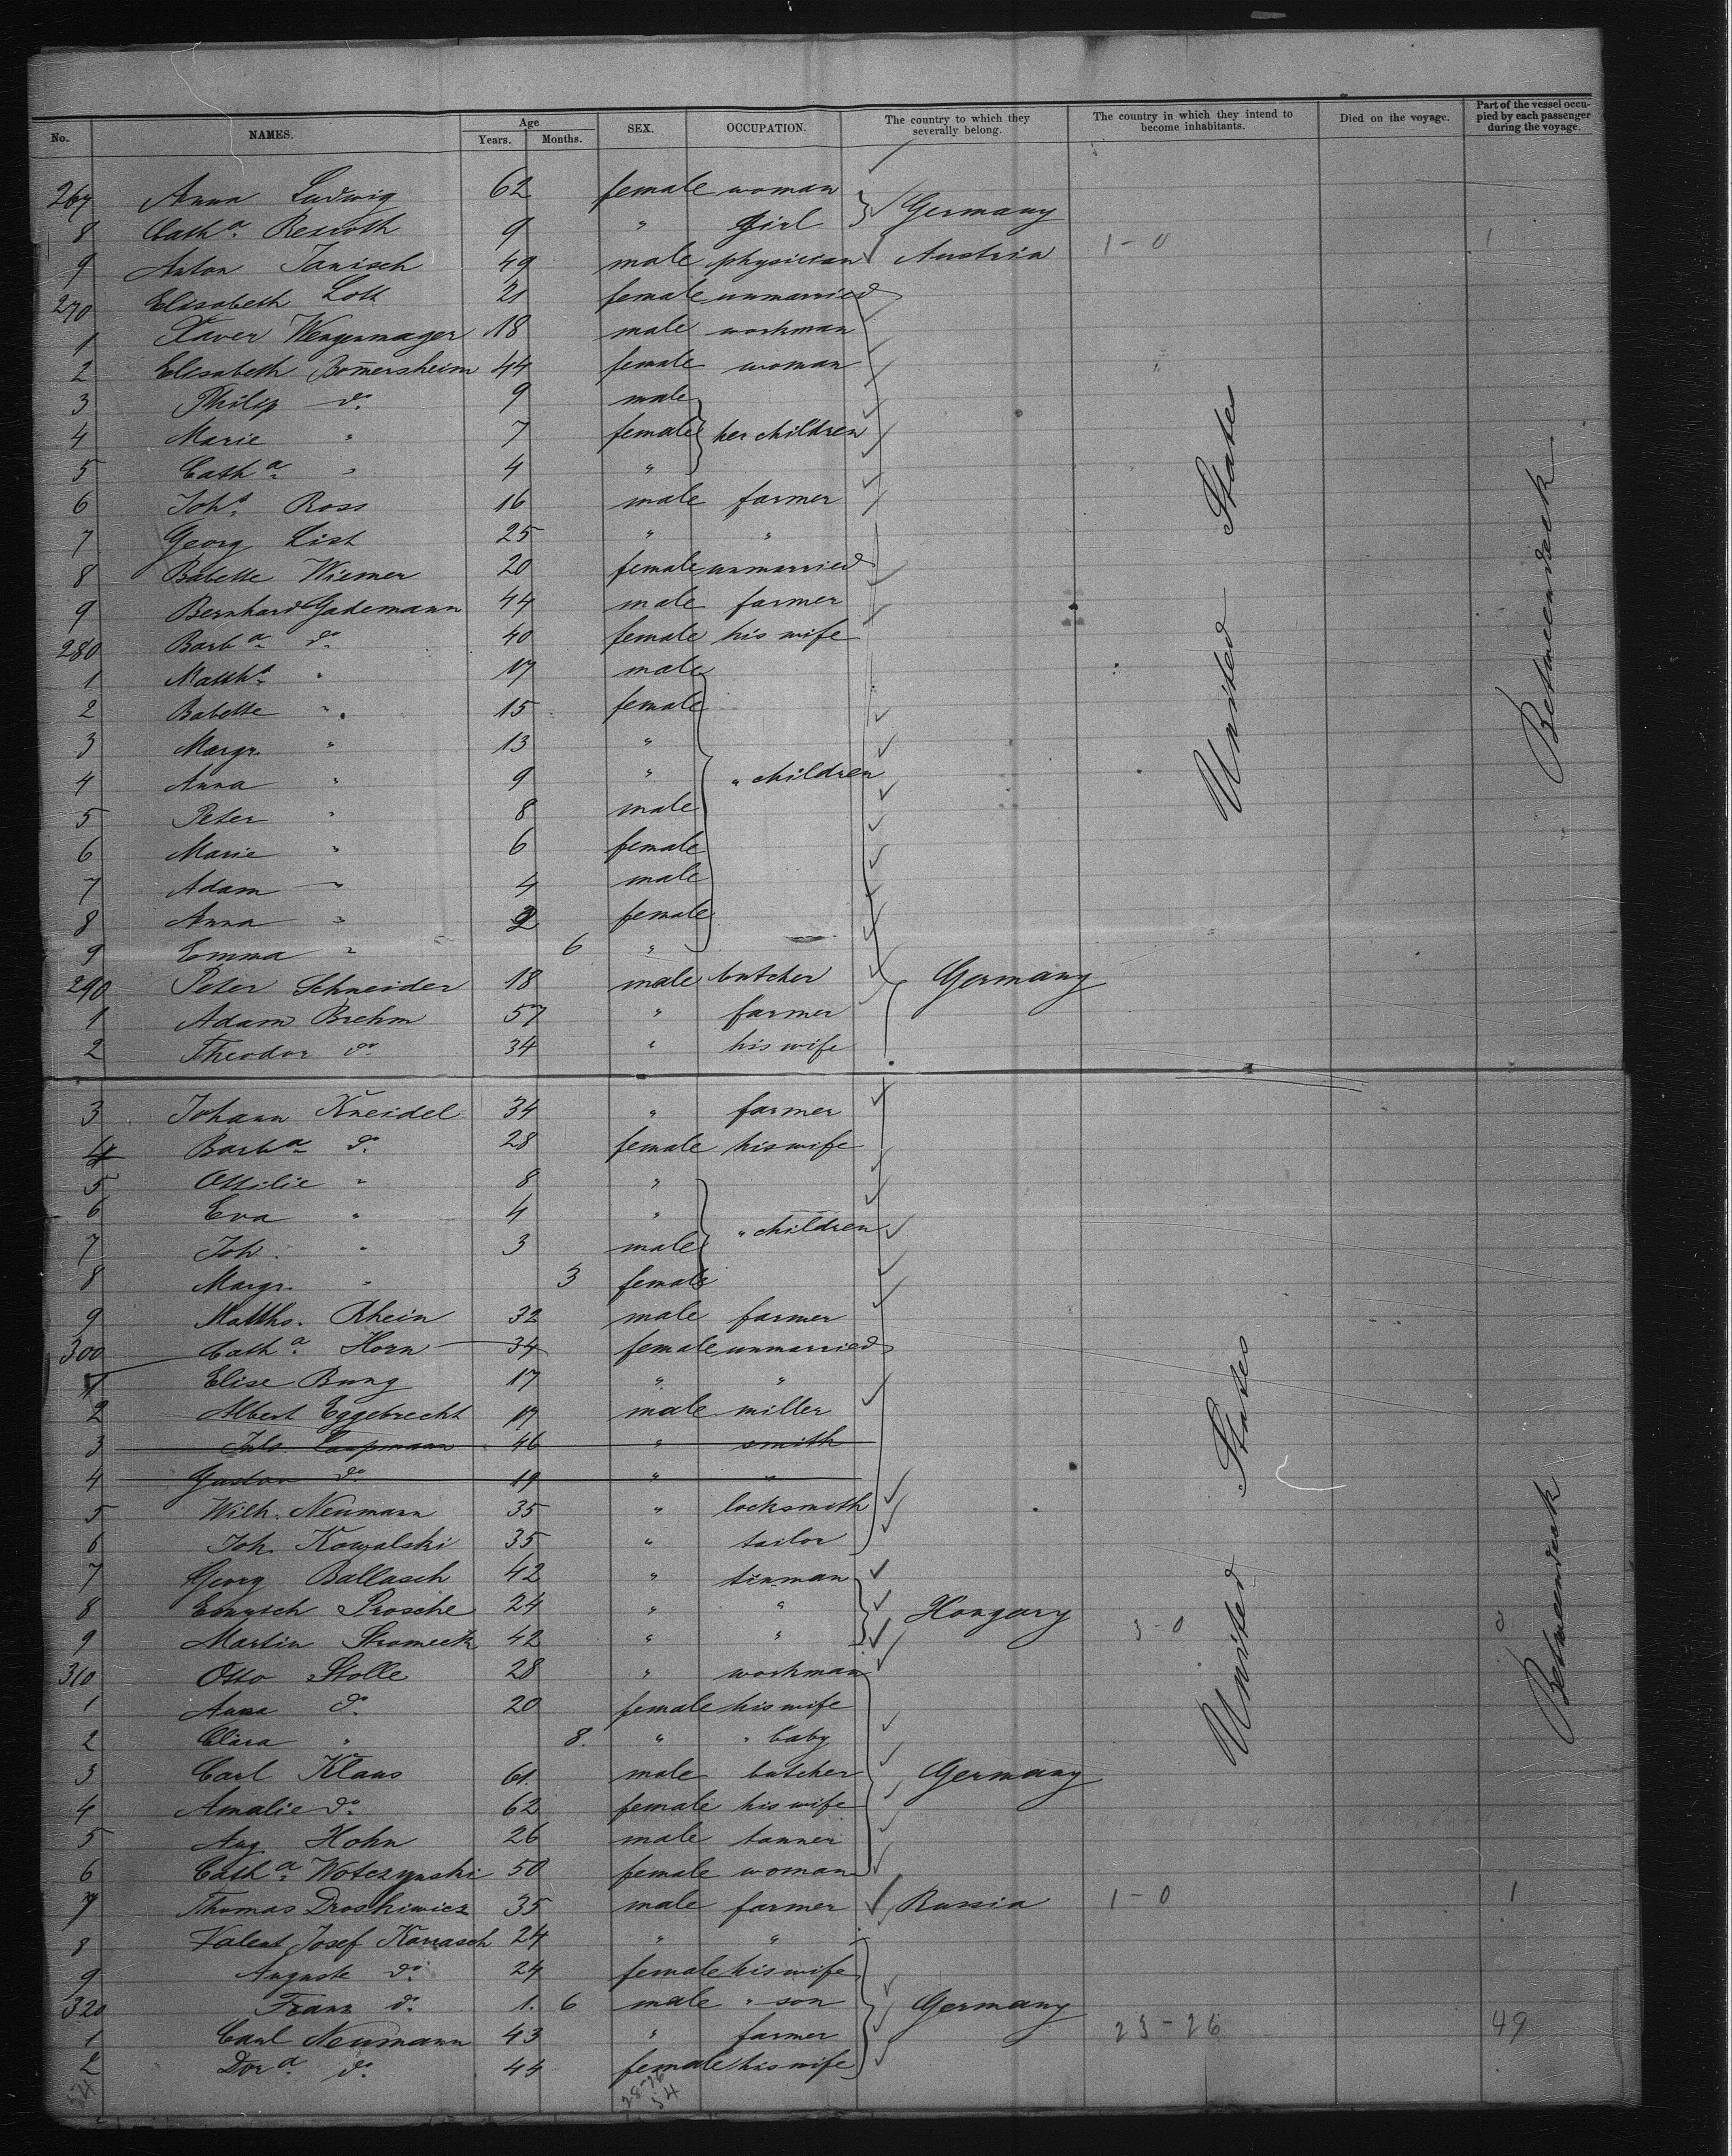 No. NAMES. Age Years. Months. SEX. OCCUPATION. The country to which they severally belong. The country in which they intend to become inhabitants. Died on the voyage. Part of the vessel occupied by each passenger during the voyage.
267 Anna Ludwig 62 female woman
8 Cath.a Rexroth 9 " girl } Germany
9 Anton Janisch 49 male physician Austria 1-0 1
270 Elisabeth Lott 21 female unmarried
1 Xaver Wengenmayer 18 male workman
2 Elisabeth Bom̄ersheim 44 female woman
3 Philip do. 9 male
4 Marie " 7 female } her children
5 Cath.a " 4 "
6 Joh.s Ross 16 male farmer
7 Georg List 25 " "
8 Babette Wiemer 20 female unmarried
9 Bernhard Gademann 44 male farmer
280 Barb.a do. 40 female his wife
1 Matth.s " 17 male
2 Babette " 15 female
3 Margr. " 13 "
4 Anna " 9 " " children
5 Peter " 8 male
6 Marie " 6 female
7 Adam " 4 male
8 Anna " 2 female
9 Emma " 6 "
290 Peter Schneider 18 male butcher Germany
1 Adam Brehm 57 " farmer
2 Theodor do. 34 " his wife
United States
Betweendeck
3 Johann Kneidel 34 " farmer
4 Barb.a do. 28 female his wife
5 Ottilie " 8 "
6 Eva " 4 "
7 Joh. " 3 male } " children
8 Margr. " 3 female
9 Matths. Rhein 32 male farmer
300 Cath.a Horn 34 female unmarried
1 Elise Bung 17 " "
2 Albert Eggebrecht 17 male miller
3 46 " smith
4 Gustav do. 19 " "
5 Wilh. Neumann 35 " locksmith
6 Joh. Kowalski 35 " tailor
7 Georg Ballasch 42 " tinman
8 Prosche 24 " " Hongary 3-0
9 Martin Stromeck 42 " "
310 Otto Stolle 28 " workman
1 Anna do. 20 female his wife
2 Clara " 8. " " baby
3 Carl Klaus 61 male butcher Germany
4 Amalie do. 62 female his wife
5 Aug. Hohn 26 male tanner
6 Cath.a Wotczynski 50 female woman
7 Thomas Droskiwicz 35 male farmer Russia 1-0 1
8 Valent Josef Karrasch 24 " "
9 Auguste do. 24 female his wife
320 Franz do. 1. 6 male " son Germany
1 Carl Neumann 43 " farmer 23-26 49
2 Dor.a do. 44 female his wife
United States
Betweendeck
54 28-26
54